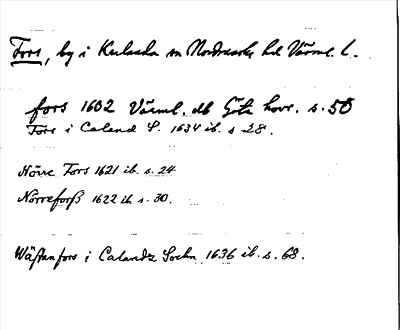 Fors, by i Karlanda sn Nordmarks hd Värml. l.
fors 1602 Värml. db Göta hovr. s. 50
Fors i Caland S. 1634 ib. s 28.
Nörre Fors 1621 ib. s. 24
Nörreforß 1622 ib s. 30.
Wästanfors i Calandz Sochn 1636 ib. s. 68.